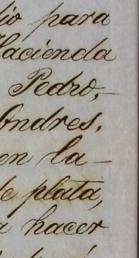 dio para
Hacienda
Pedro,-
ondres,
en la-
de plata,
a hacer